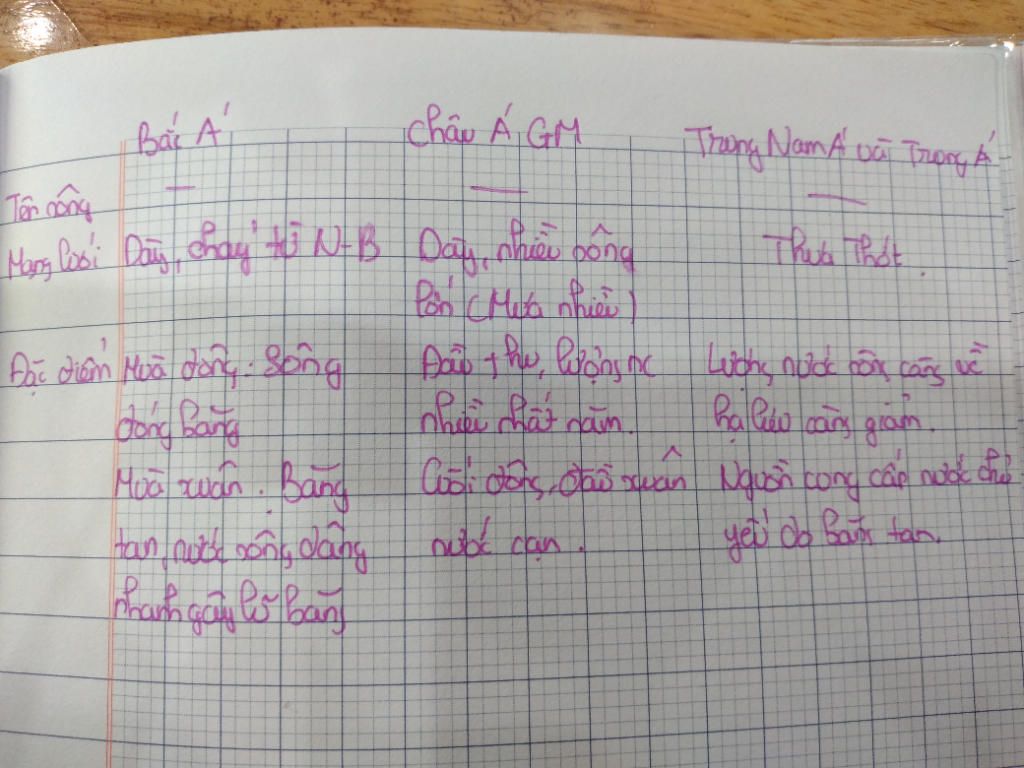 Bắc Á Châu Á GM Trung Nam Á và Trung Á
Tên sông — — —
Mạng lưới Dày, chảy từ N-B Dày, nhiều sông Thưa Thớt.
lớn (Mưa nhiều)
Đặc điểm Mùa đông: Sông Đầu thu, lượng nc Lượng nước sông càng về
đóng băng nhiều nhất năm. hạ lưu càng giảm.
Mùa xuân. Băng Cuối đông, đầu xuân Nguồn cong cấp nước chủ
tan, nước sông dâng nước cạn. yếu do băng tan.
nhanh gây lũ băng